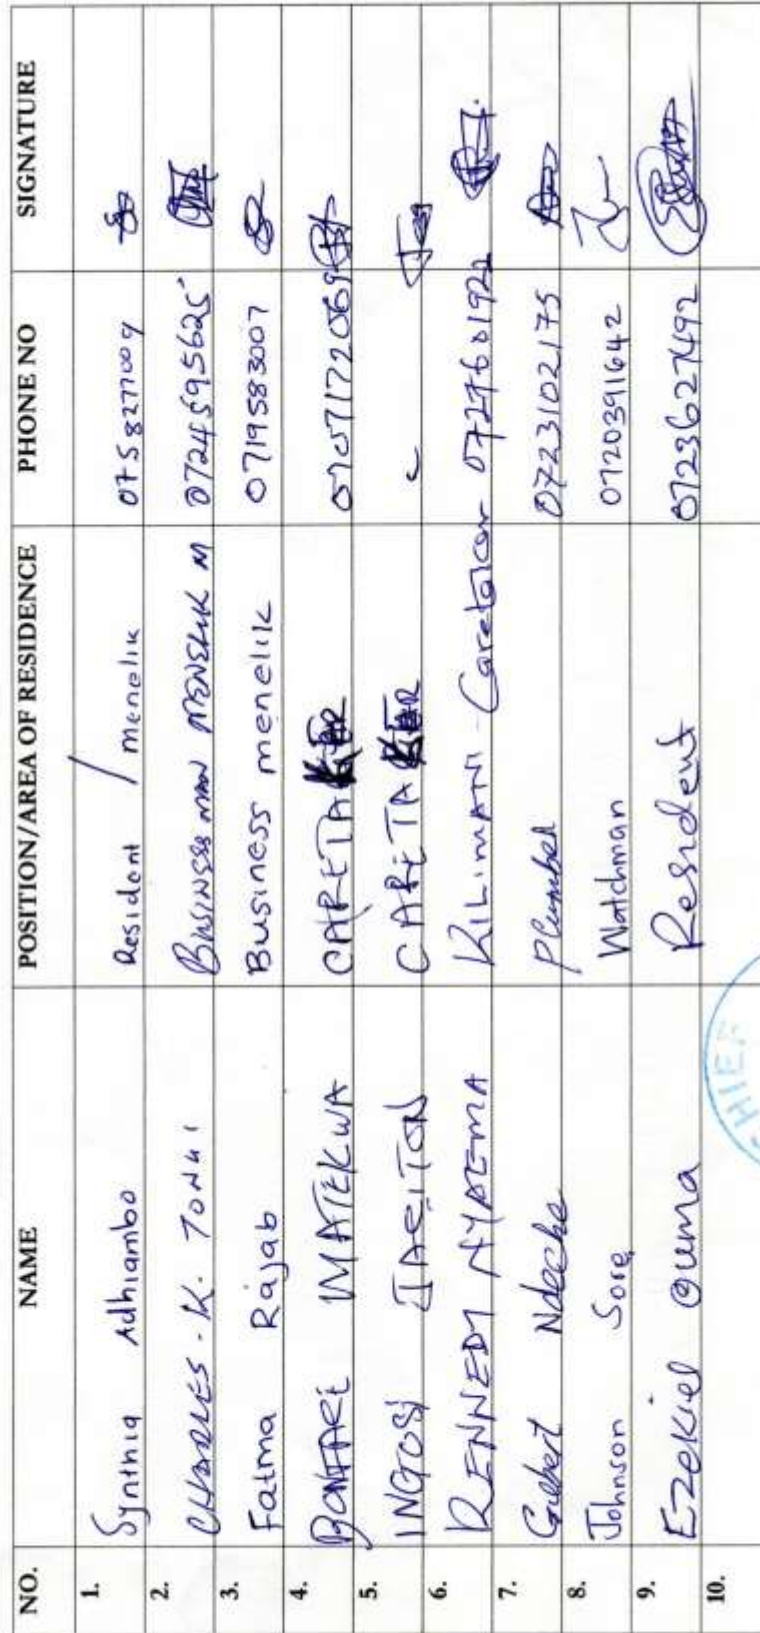 NO. NAME POSITION/AREA OF RESIDENCE PHONE NO SIGNATURE
1. Synthia Adhiambo Resident / menelik
2. CHARLES . K. TONUI BUSINESS MAN MENELIK M 0724595625
3. Fatma Rajab Business menelik 0719583007
4. WATEKWA CARETAKER
5. INGOSI CARETAKER
6. KENNEDY NYAEMA KILIMANI - Caretaker
7. Gilbert Plumber 0723102175
8. Johnson Sore Watchman 0720391642
9. Ezekiel Ouma Resident 0723627492
10.